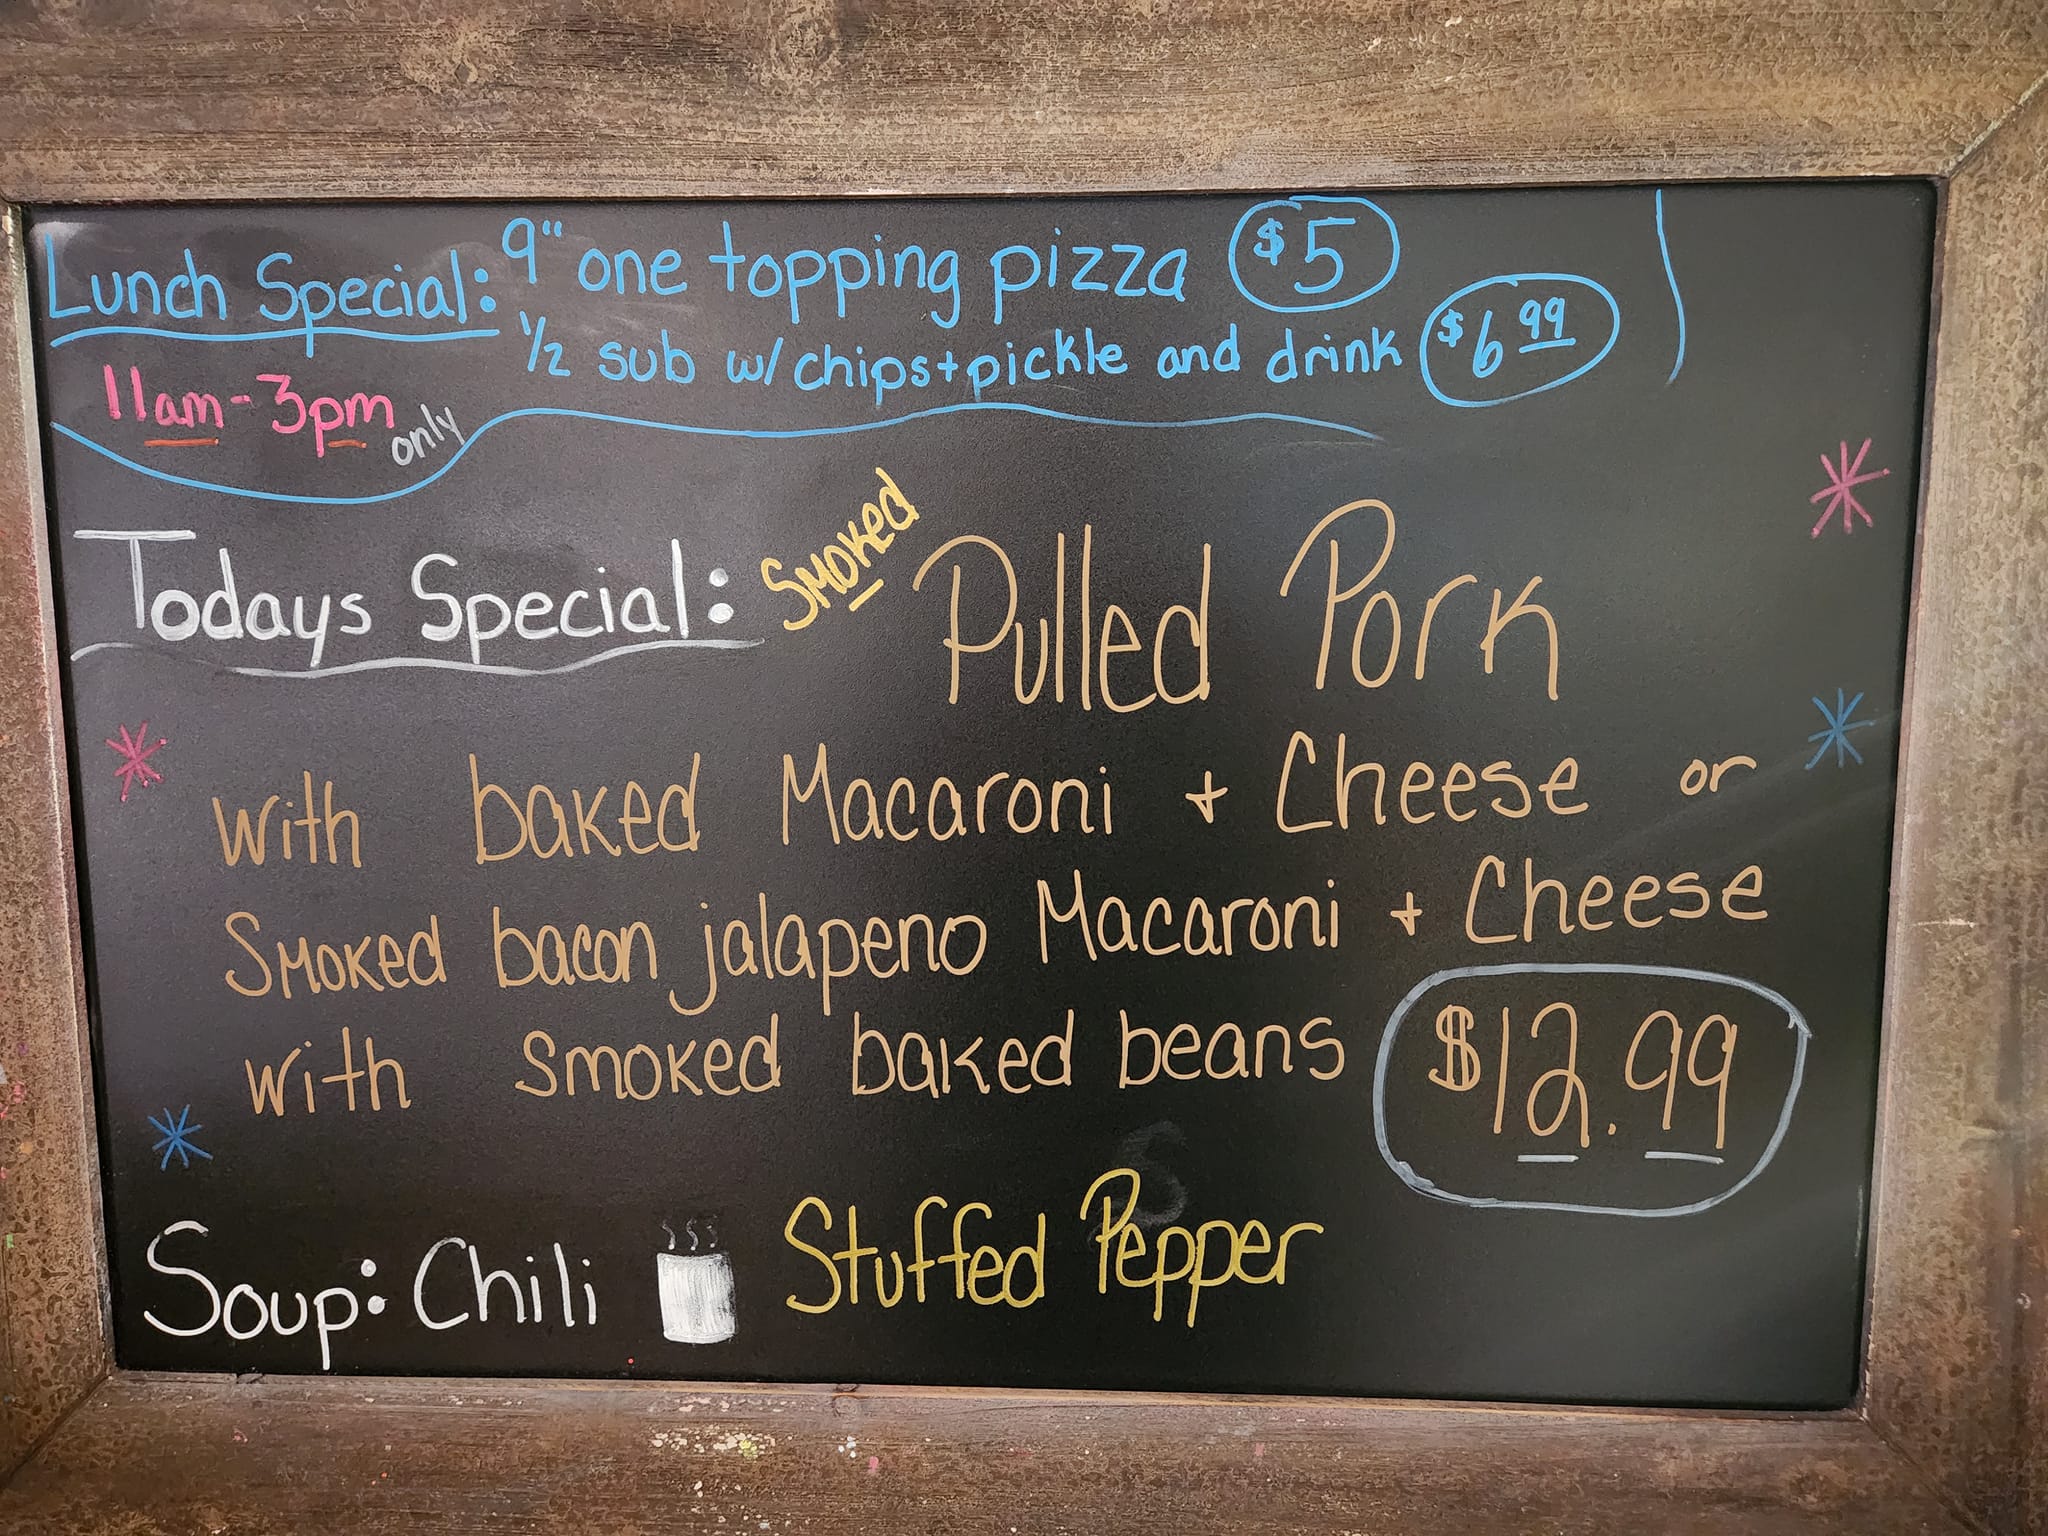 Lunch Special: 9" one topping pizza $5
1/2 sub w/chips+pickle and drink $6 99
11am-3pm only
Todays Special: Smoked Pulled Pork
with baked Macaroni + Cheese or
Smoked bacon jalapeno Macaroni + Cheese
with smoked baked beans $12.99
Soup: Chili Stuffed Pepper